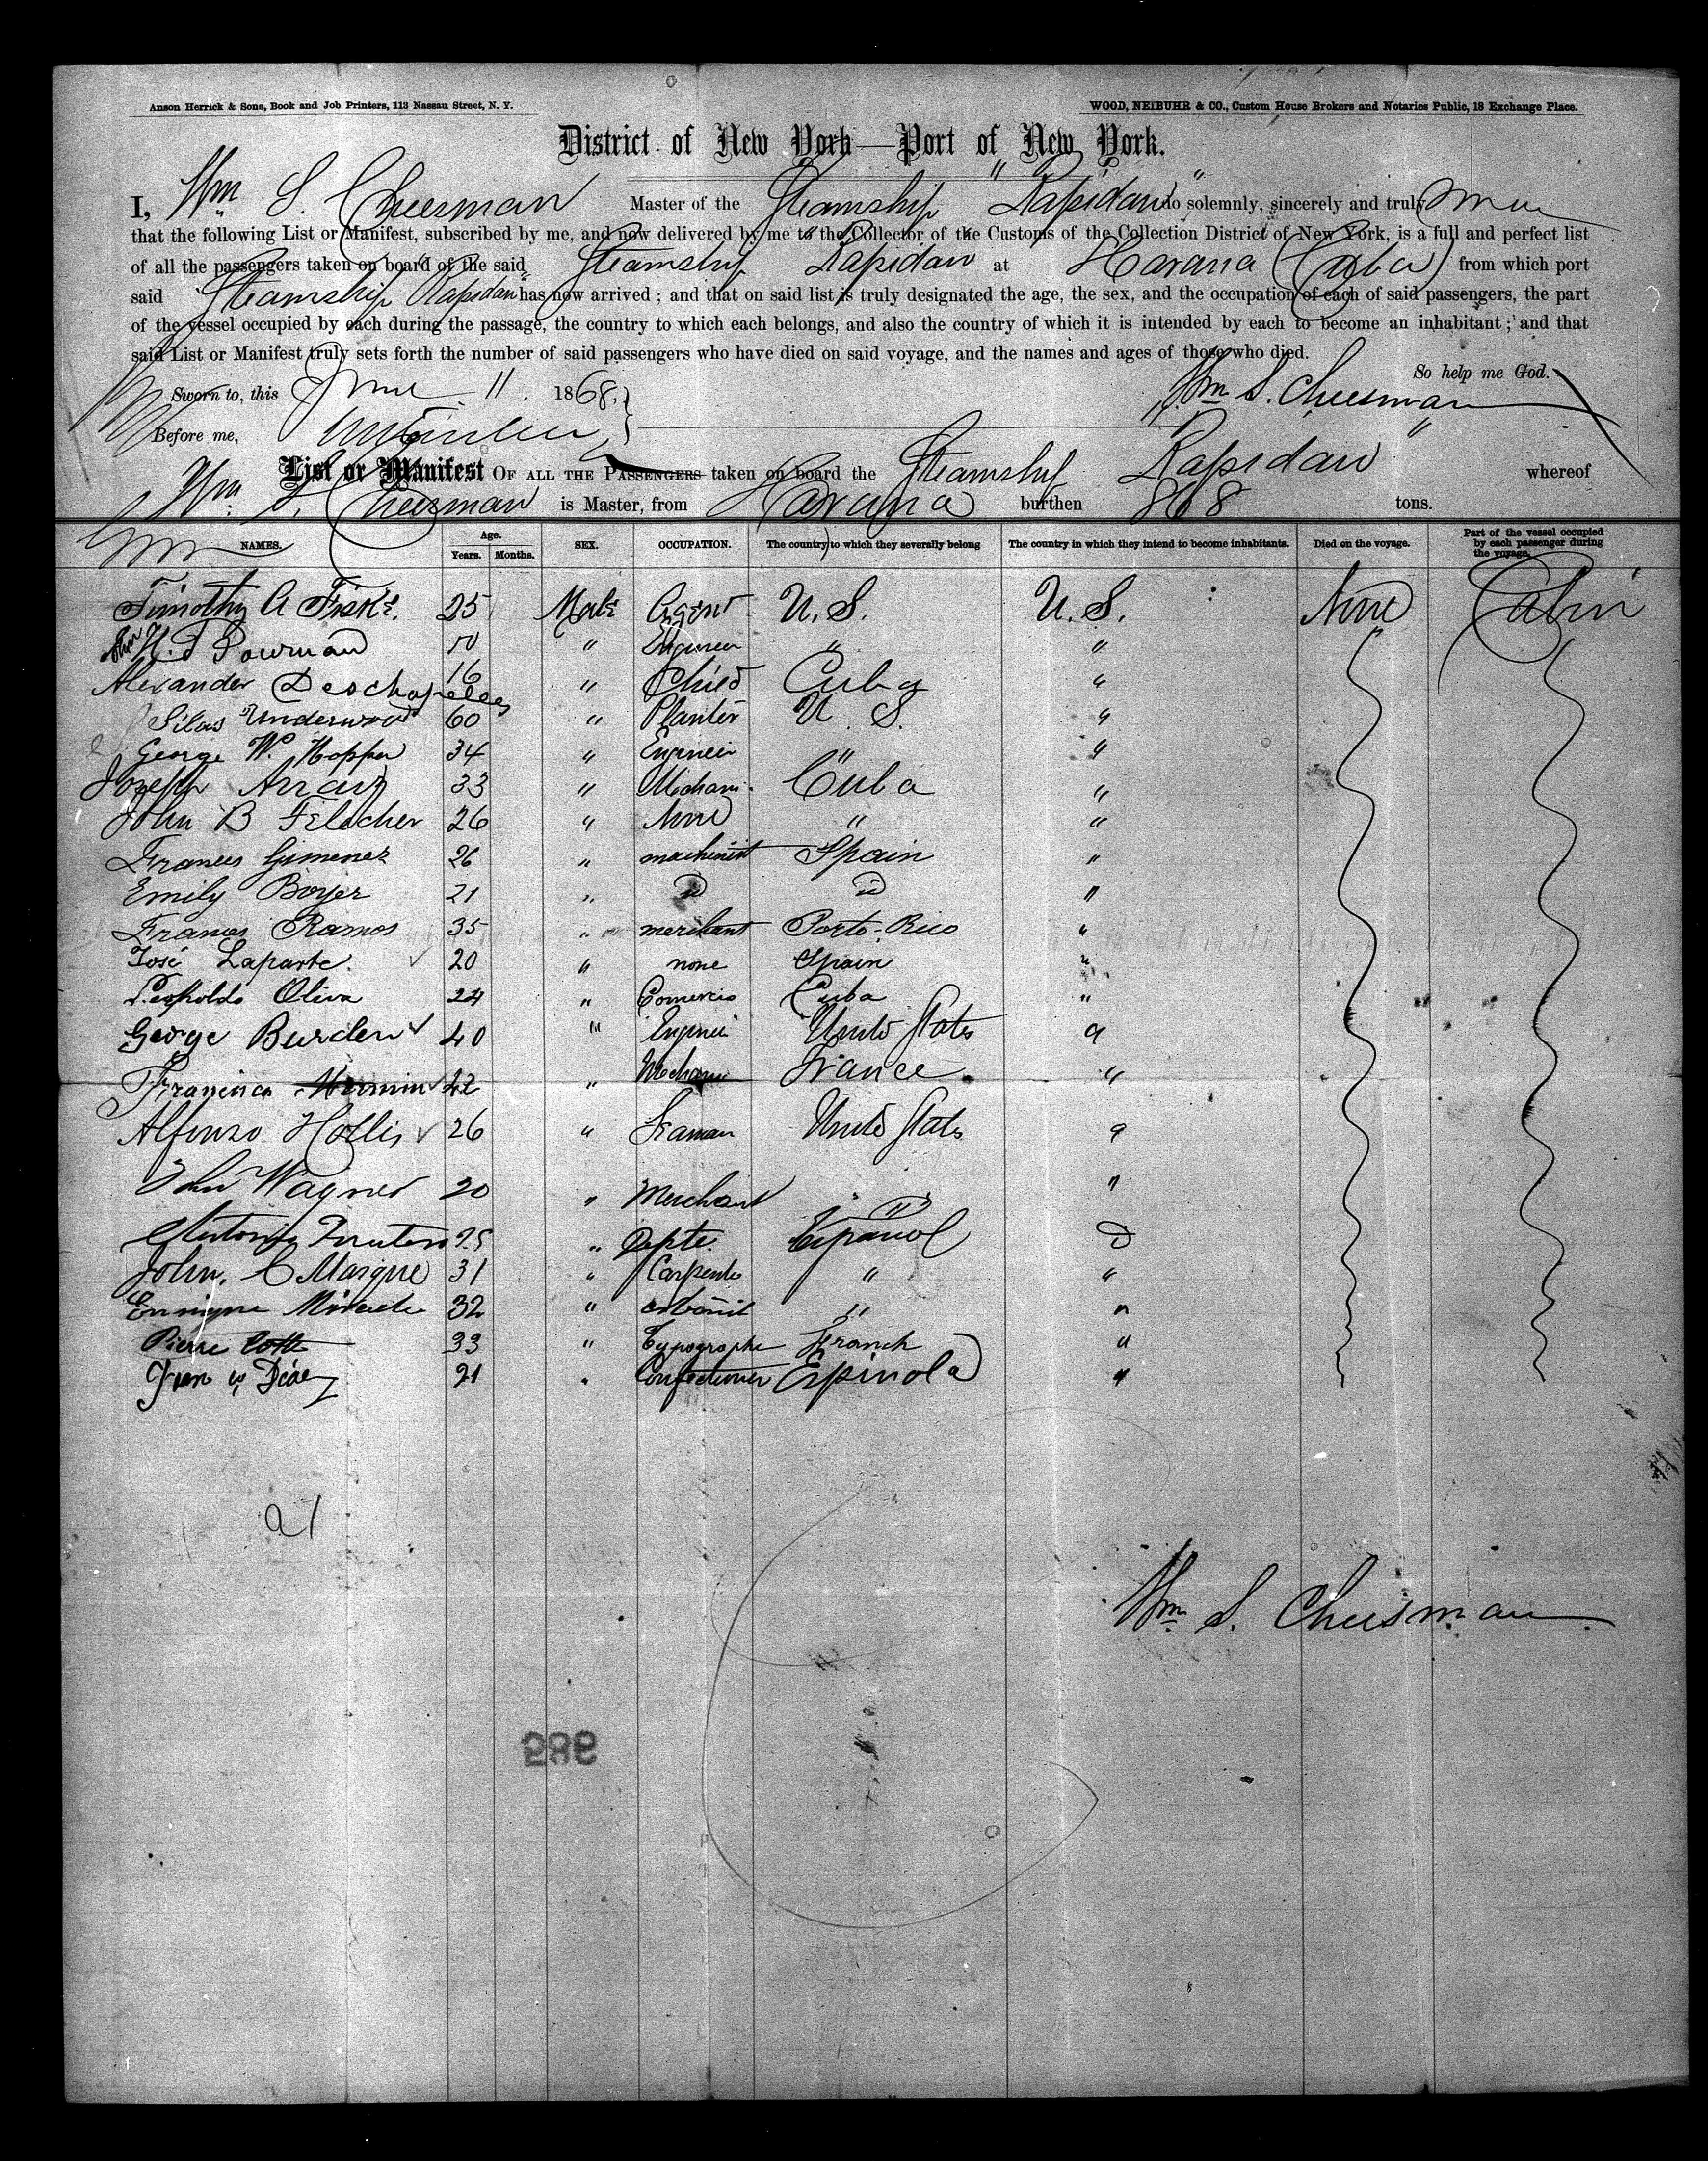 Anson Herrick & Sons, Book and Job Printers, 113 Nassau Street, N. Y. WOOD, NEIBUHR & CO., Custom House Brokers and Notaries Public, 18 Exchange Place.
District of New York—Port of New York.
I, Wm S. Cheesman Master of the Steamship "Rapidan" do solemnly, sincerely and truly
that the following List or Manifest, subscribed by me, and now delivered by me to the Collector of the Customs of the Collection District of New York, is a full and perfect list
of all the passengers taken on board of the said Steamship Rapidan at Havana (Cuba) from which port
said Steamship Rapidan has now arrived; and that on said list is truly designated the age, the sex, and the occupation of each of said passengers, the part
of the vessel occupied by each during the passage, the country to which each belongs, and also the country of which it is intended by each to become an inhabitant; and that
said List or Manifest truly sets forth the number of said passengers who have died on said voyage, and the names and ages of those who died.
So help me God.
Sworn to, this June 11. 1868. Wm S. Cheesman
Before me,
List or Manifest OF ALL THE PASSENGERS taken on board the Steamship Rapidan whereof
Wm S. Cheesman is Master, from Havana burthen 868 tons.
NAMES. Age. Years. Months. SEX. OCCUPATION. The country to which they severally belong The country in which they intend to become inhabitants. Died on the voyage. Part of the vessel occupied by each passenger during the voyage.
Timothy A Fiske. 25 Male Agent U. S. U. S. None Cabin
Bowman " Engineer " "
Alexander Deschapelles 16 " Child Cuba "
Silas Underwood 60 " Planter U. S. "
George W. Hopper 34 " Engineer " "
Joseph Arrauz 33 " Mechani Cuba "
John B Fletcher 26 " None " "
Frances Gimenez 26 " machinist Spain "
Emily Boyer 21 " "
Frances Ramos 35 " merchant Porto-Rico "
José Laparte. 20 " none Spain "
Leopoldo Oliva 24 " Comercio Cuba "
George Burden 40 " Engineer United States "
42 " Mechanic France "
Alfonzo Hollis 26 " Seaman United States "
John Wagner 20 " Merchant " "
Antonio 25 " Español
John. C Marque 31 " Carpenter " "
32 " " "
Pierre 33 " Typographe Franch "
Diaz 21 " Confectioner Espinola "
21
Wm S. Cheesman
289